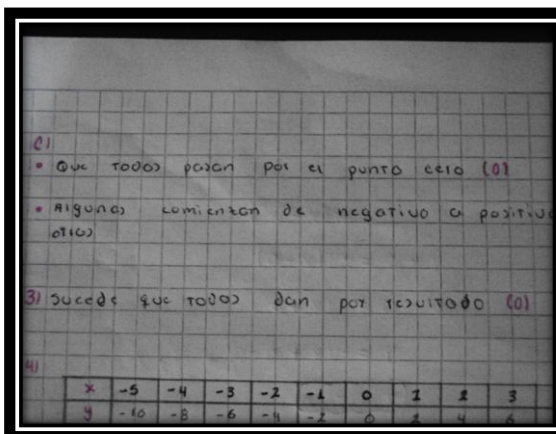 C)
• Que todos pasan por el punto cero (0)
• Algunas comienzan de negativo a positivo
otras
3) Sucede que todos dan por resultado (0)
4)
x -5 -4 -3 -2 -1 0 1 2 3
y -10 -8 -6 -4 -2 0 2 4 6